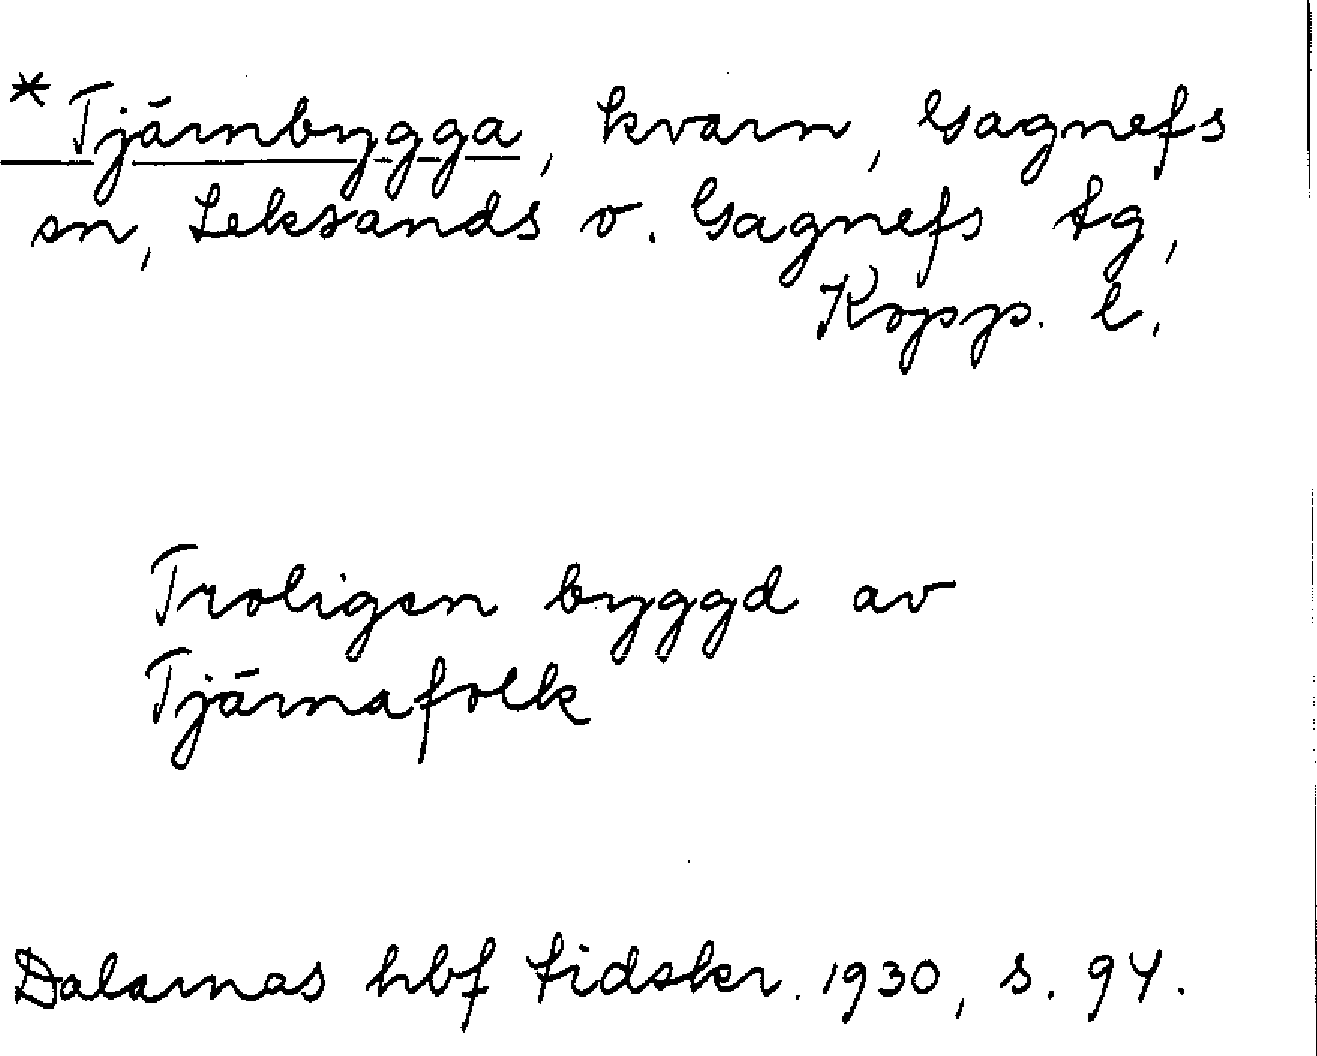 *Tjärnbygga, kvarn, Gagnefs
sn, Leksands o. Gagnefs tg,
Kopp. l.
Troligen byggd av
Tjärnafolk
Dalarnas hbf tidskr. 1930, s. 94.